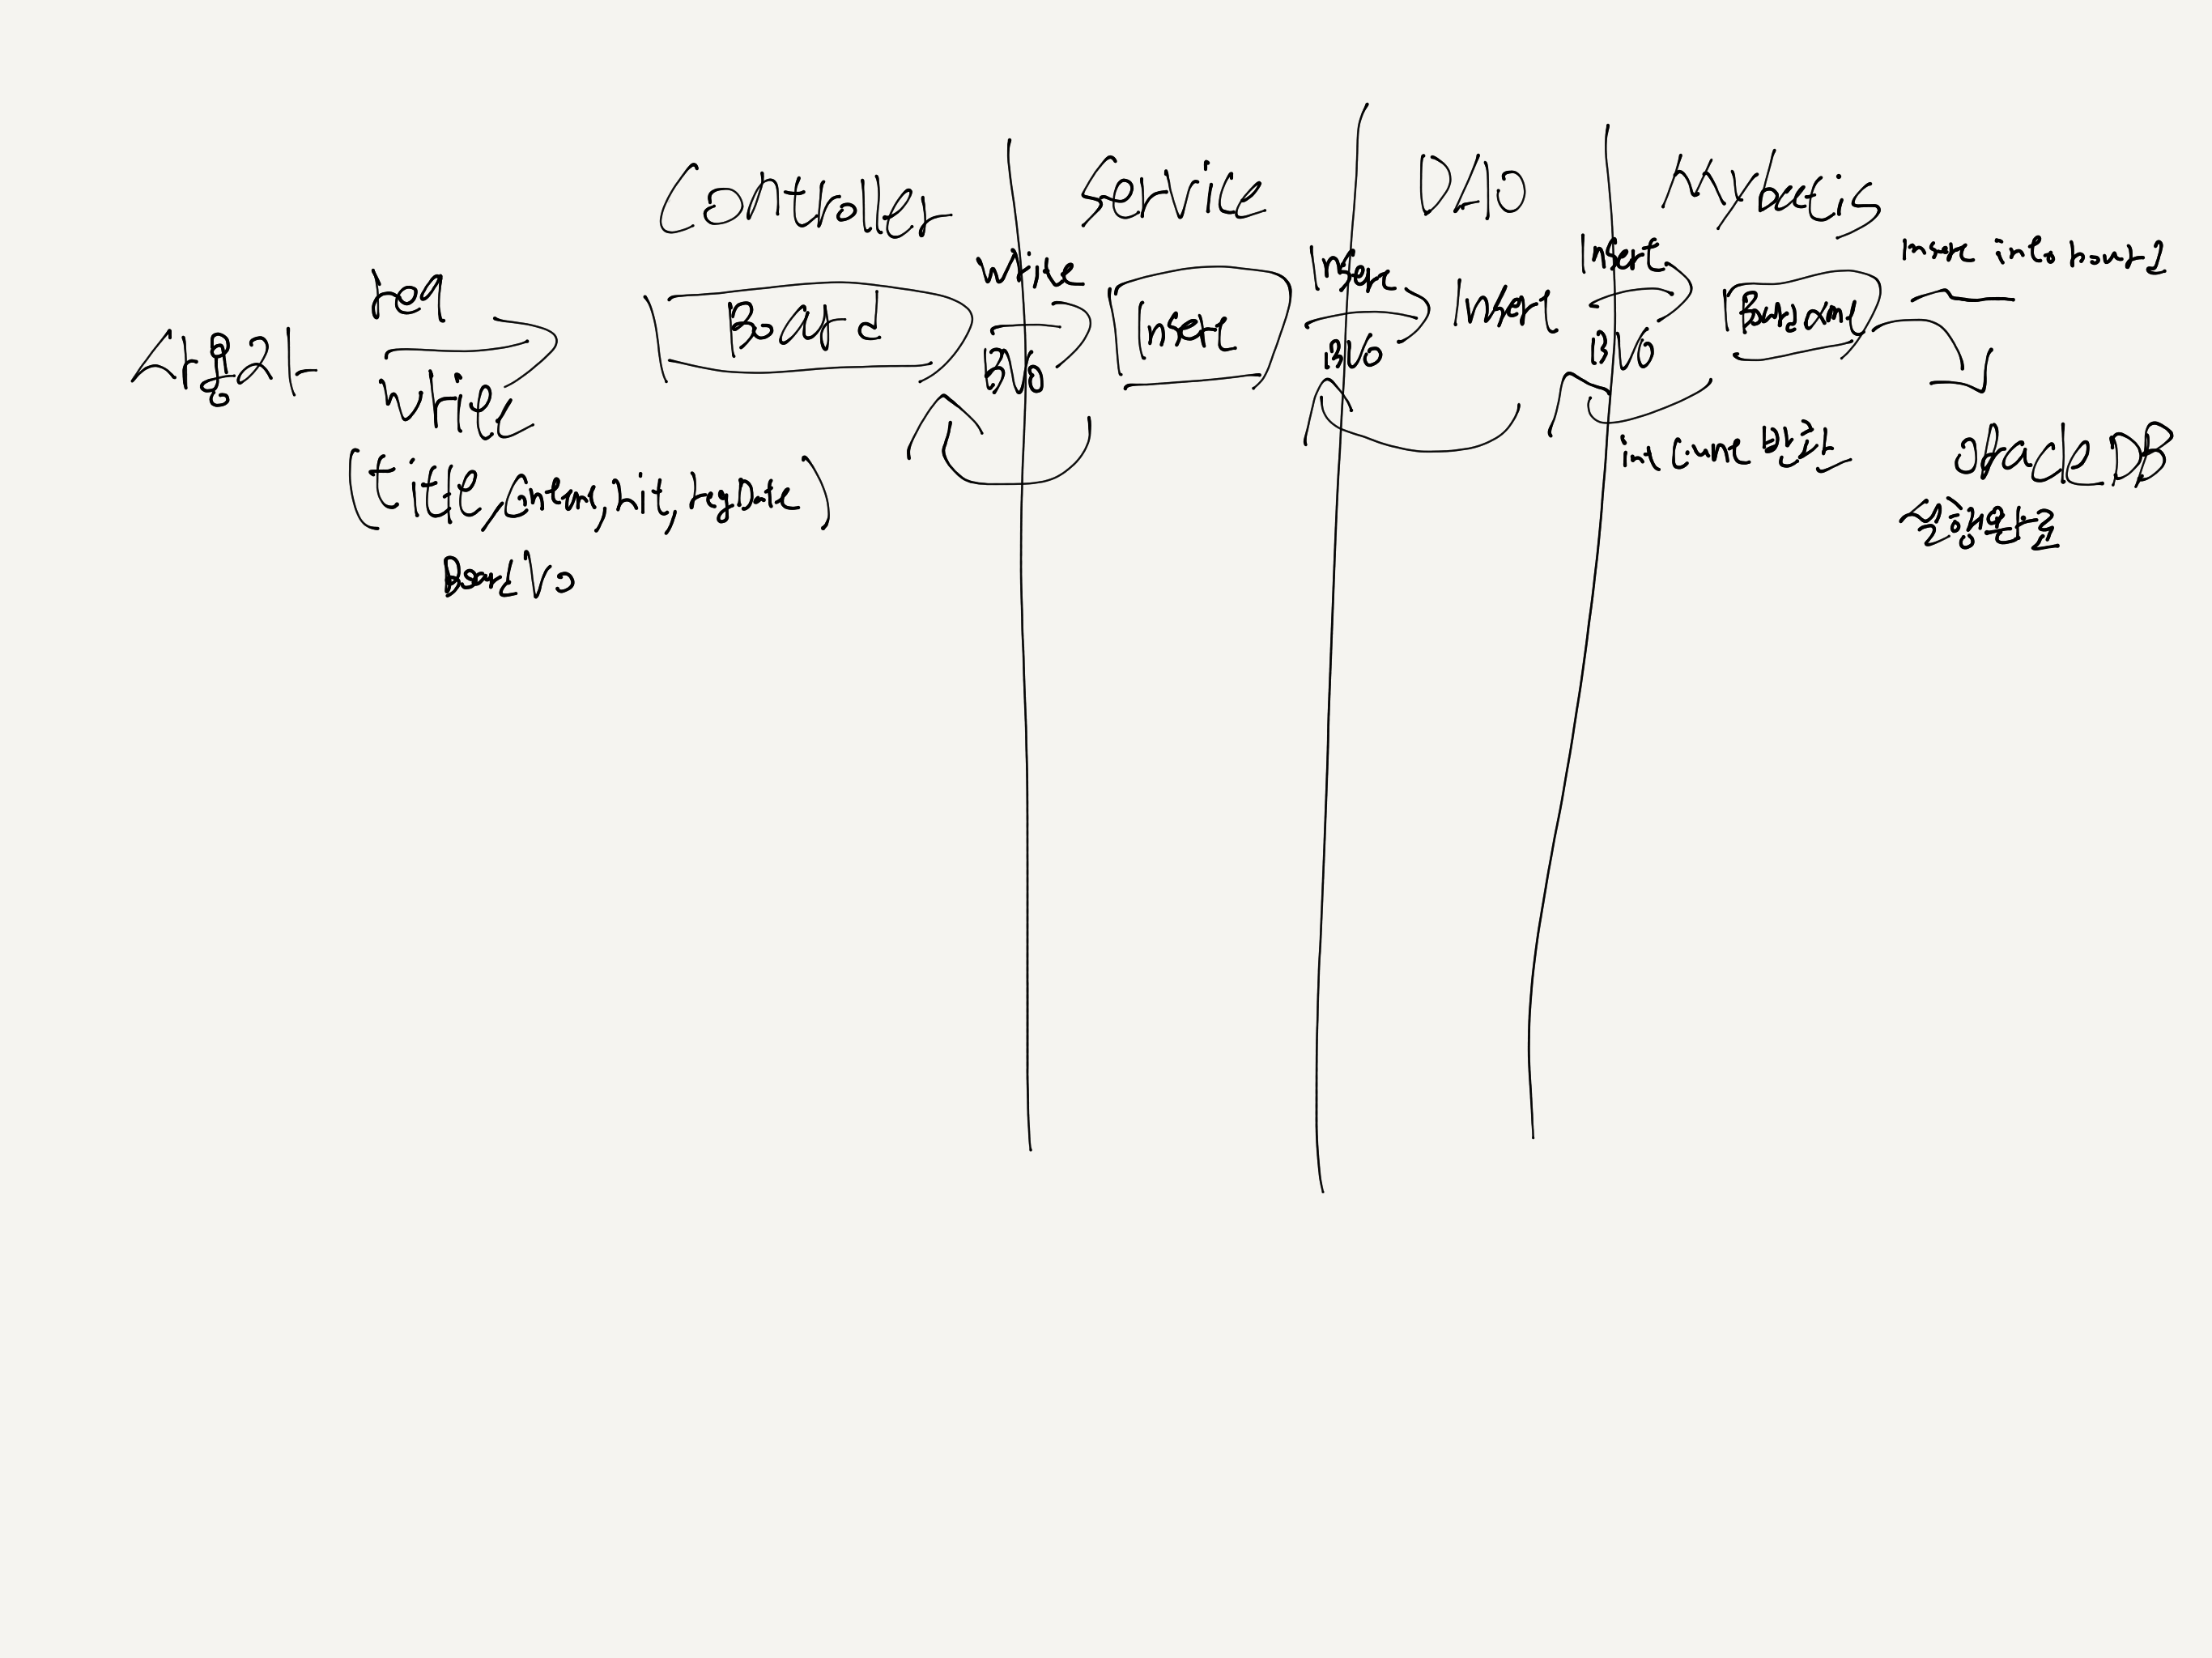 Controller
Service
DAO
Mybatis
사용자
req
write
(title, content, hit, regDate)
BoardVo
Board
write
BVo
Insert
Insert
BVo
Insert
Insert
BVo
Board.xml
insert into board
int count 반환
Oracle DB
실행완료